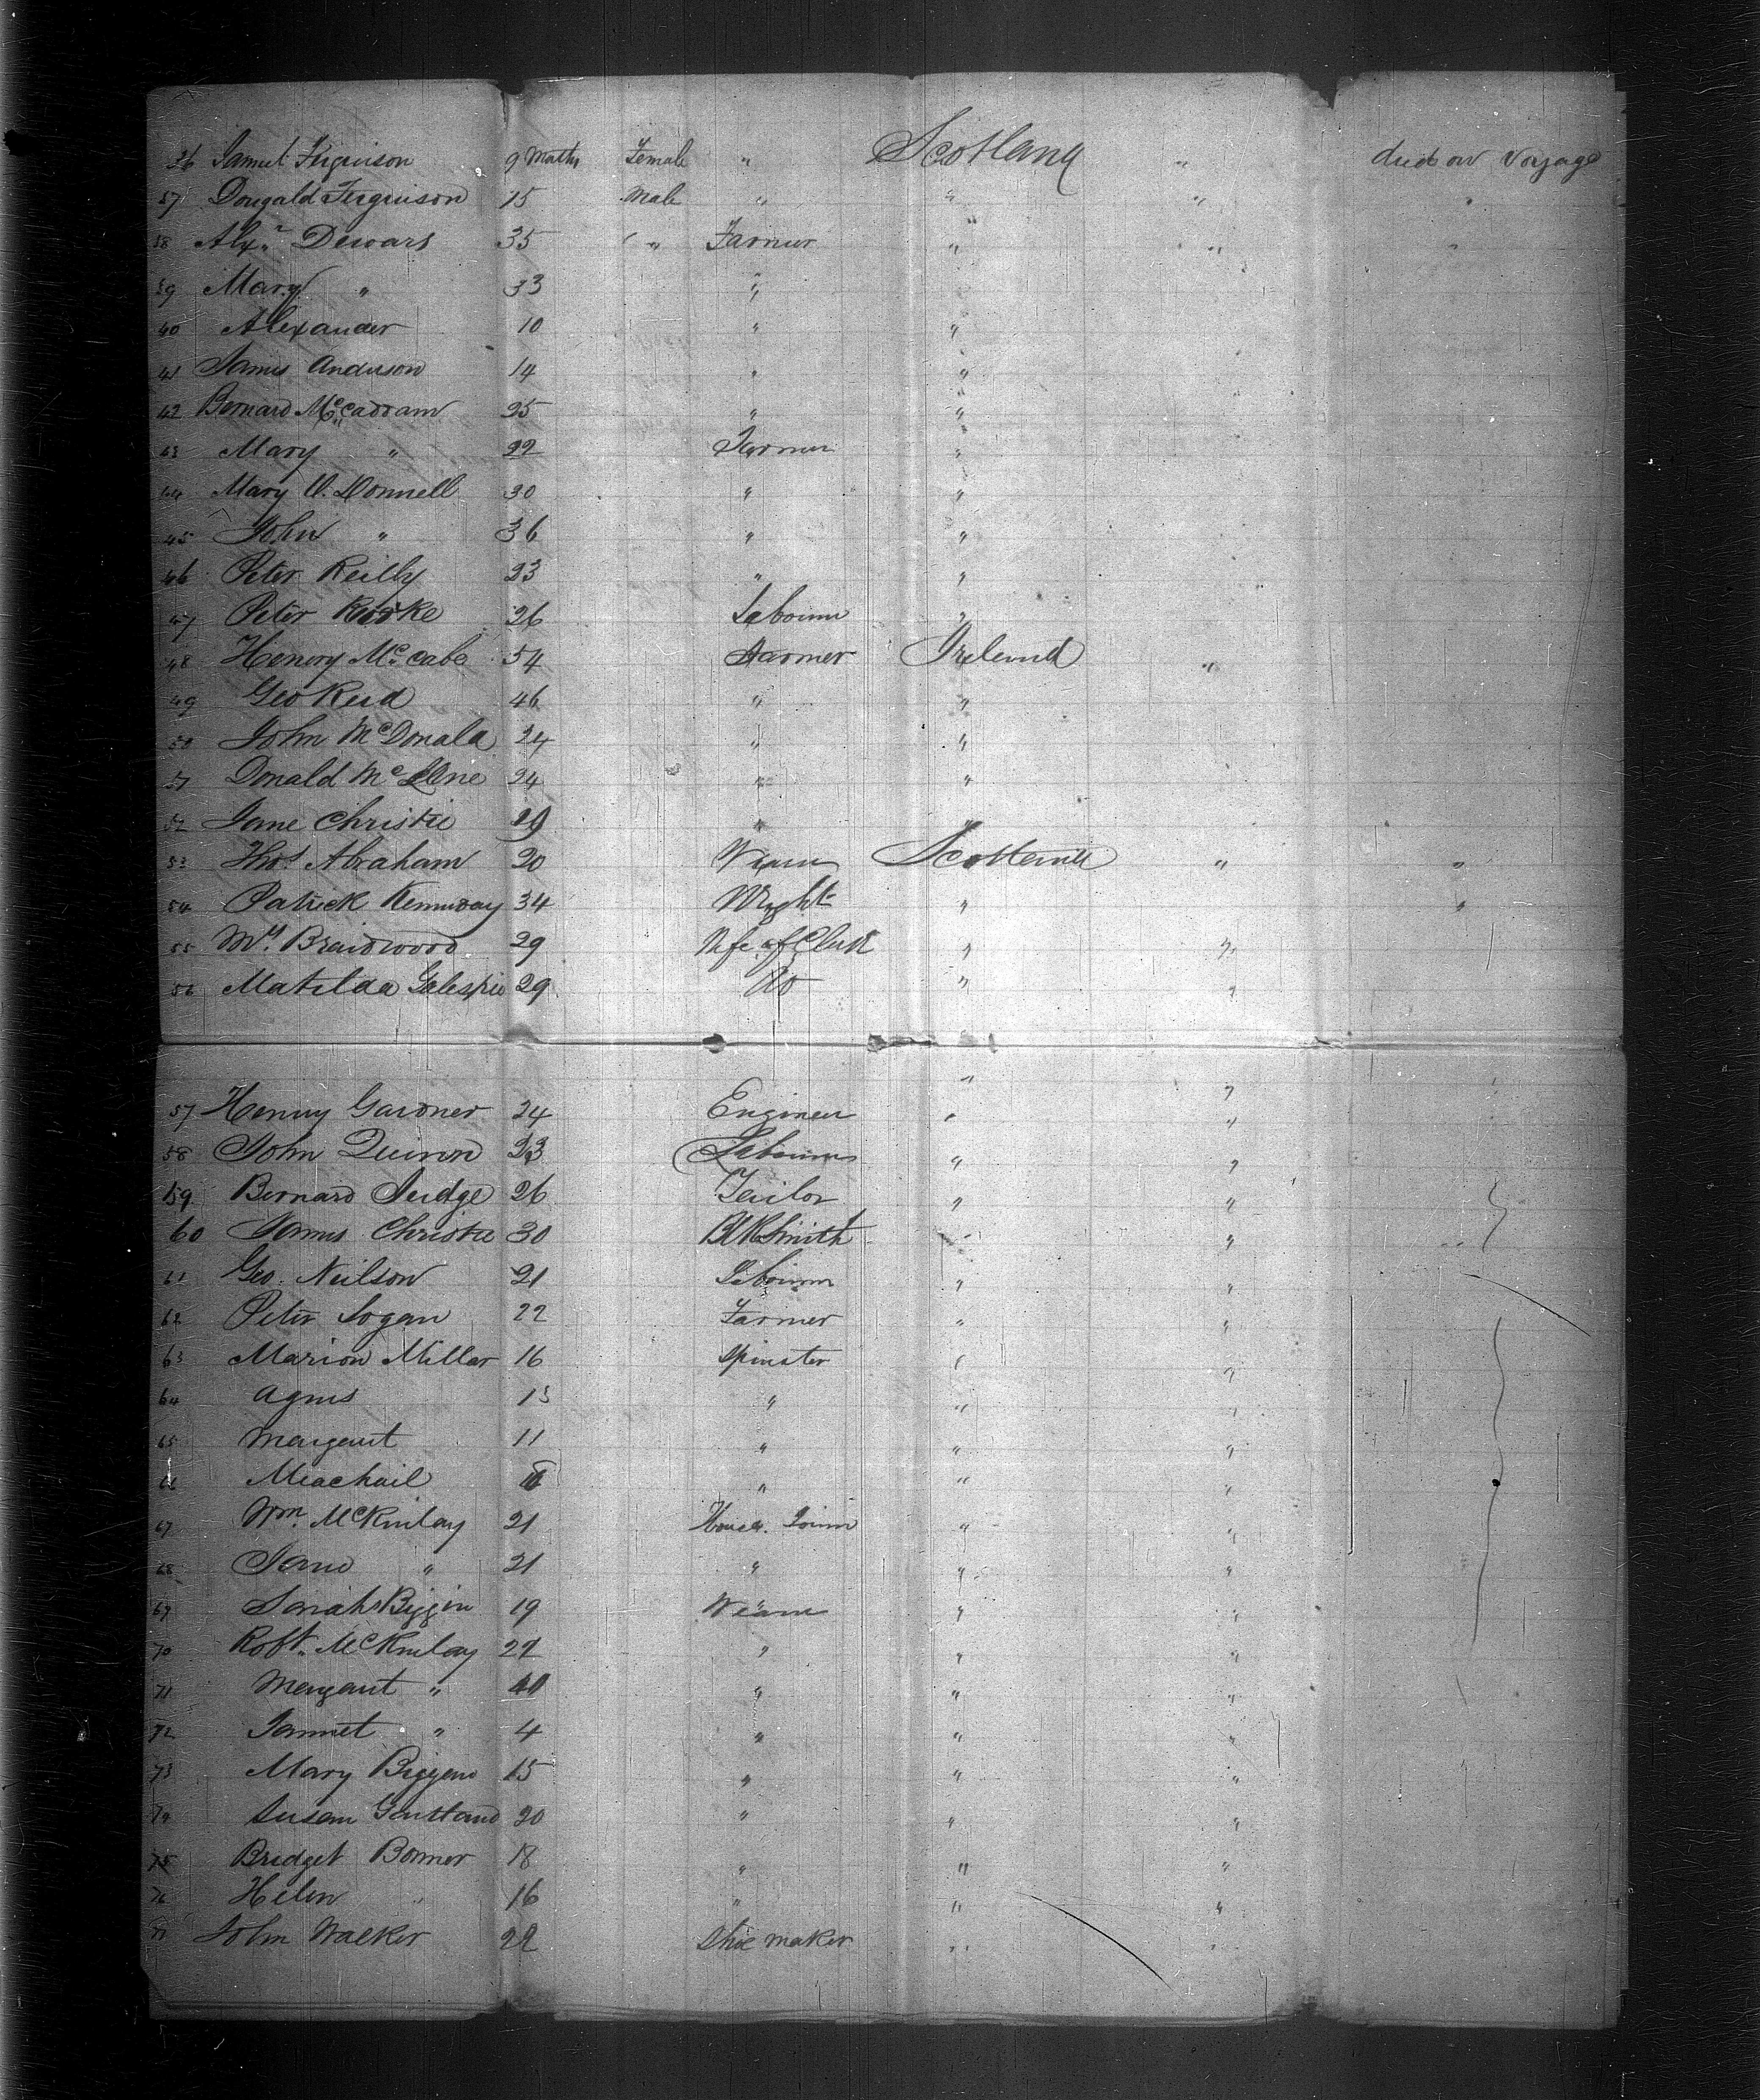 36 Samuel Ferguison 9 Moths Female " Scotland " died on Voyage
37 Dougald Ferguison 15 Male " " " "
38 Alexr Dewars 35 " Farmer " " "
39 Mary " 33 " "
40 Alexander 10 " "
41 James Anderson 14 " "
42 Bernard Mc Caddam 25 " "
43 Mary " 22 Farmer "
44 Mary O. Donnell 30 " "
45 John " 36 " "
46 Peter Reilly 23 " "
47 Peter 26 Labourer "
48 Henory Mc Cabe 54 Farmer Ireland "
49 Geo Reid 46 " "
50 John McDonald 24 " "
51 Donald Mc 24 " "
52 Jane Christie 29 " "
53 Thos Abraham 20 Weaver Scotland " "
54 Patrick Kenniday 34 Wright " "
55 Mrs Braidwood 29 Wife of Clerk " "
56 Matilda Galespie 29 Do " "
" "
57 Henny Gardner 24 Engineer " "
58 John Quinn 23 Labourer " "
59 Bernard Judge 26 Tailor " "
60 James Christie 30 BlkSmith " "
61 Geo. Neilson 21 Labourer " "
62 Peter Logan 22 Farmer " "
63 Marion Millar 16 Spinster " "
64 Agnes 13 " " "
65 Margaret 11 " " "
66 Meachail " " "
67 Wm. McKinlay 21 House Joiner " "
68 Jane " 21 " " "
69 Sarah Biggin 19 Weaver " "
70 Robt. McKinlay 22 " " "
71 Margaret " " " "
72 Jannet " 4 " " "
73 Mary Biggen 15 " " "
74 Susan Gartland 20 " " "
75 Bridget Bonner 18 " " "
76 Helen " 16 " " "
77 John Walker 22 Shoe maker " "